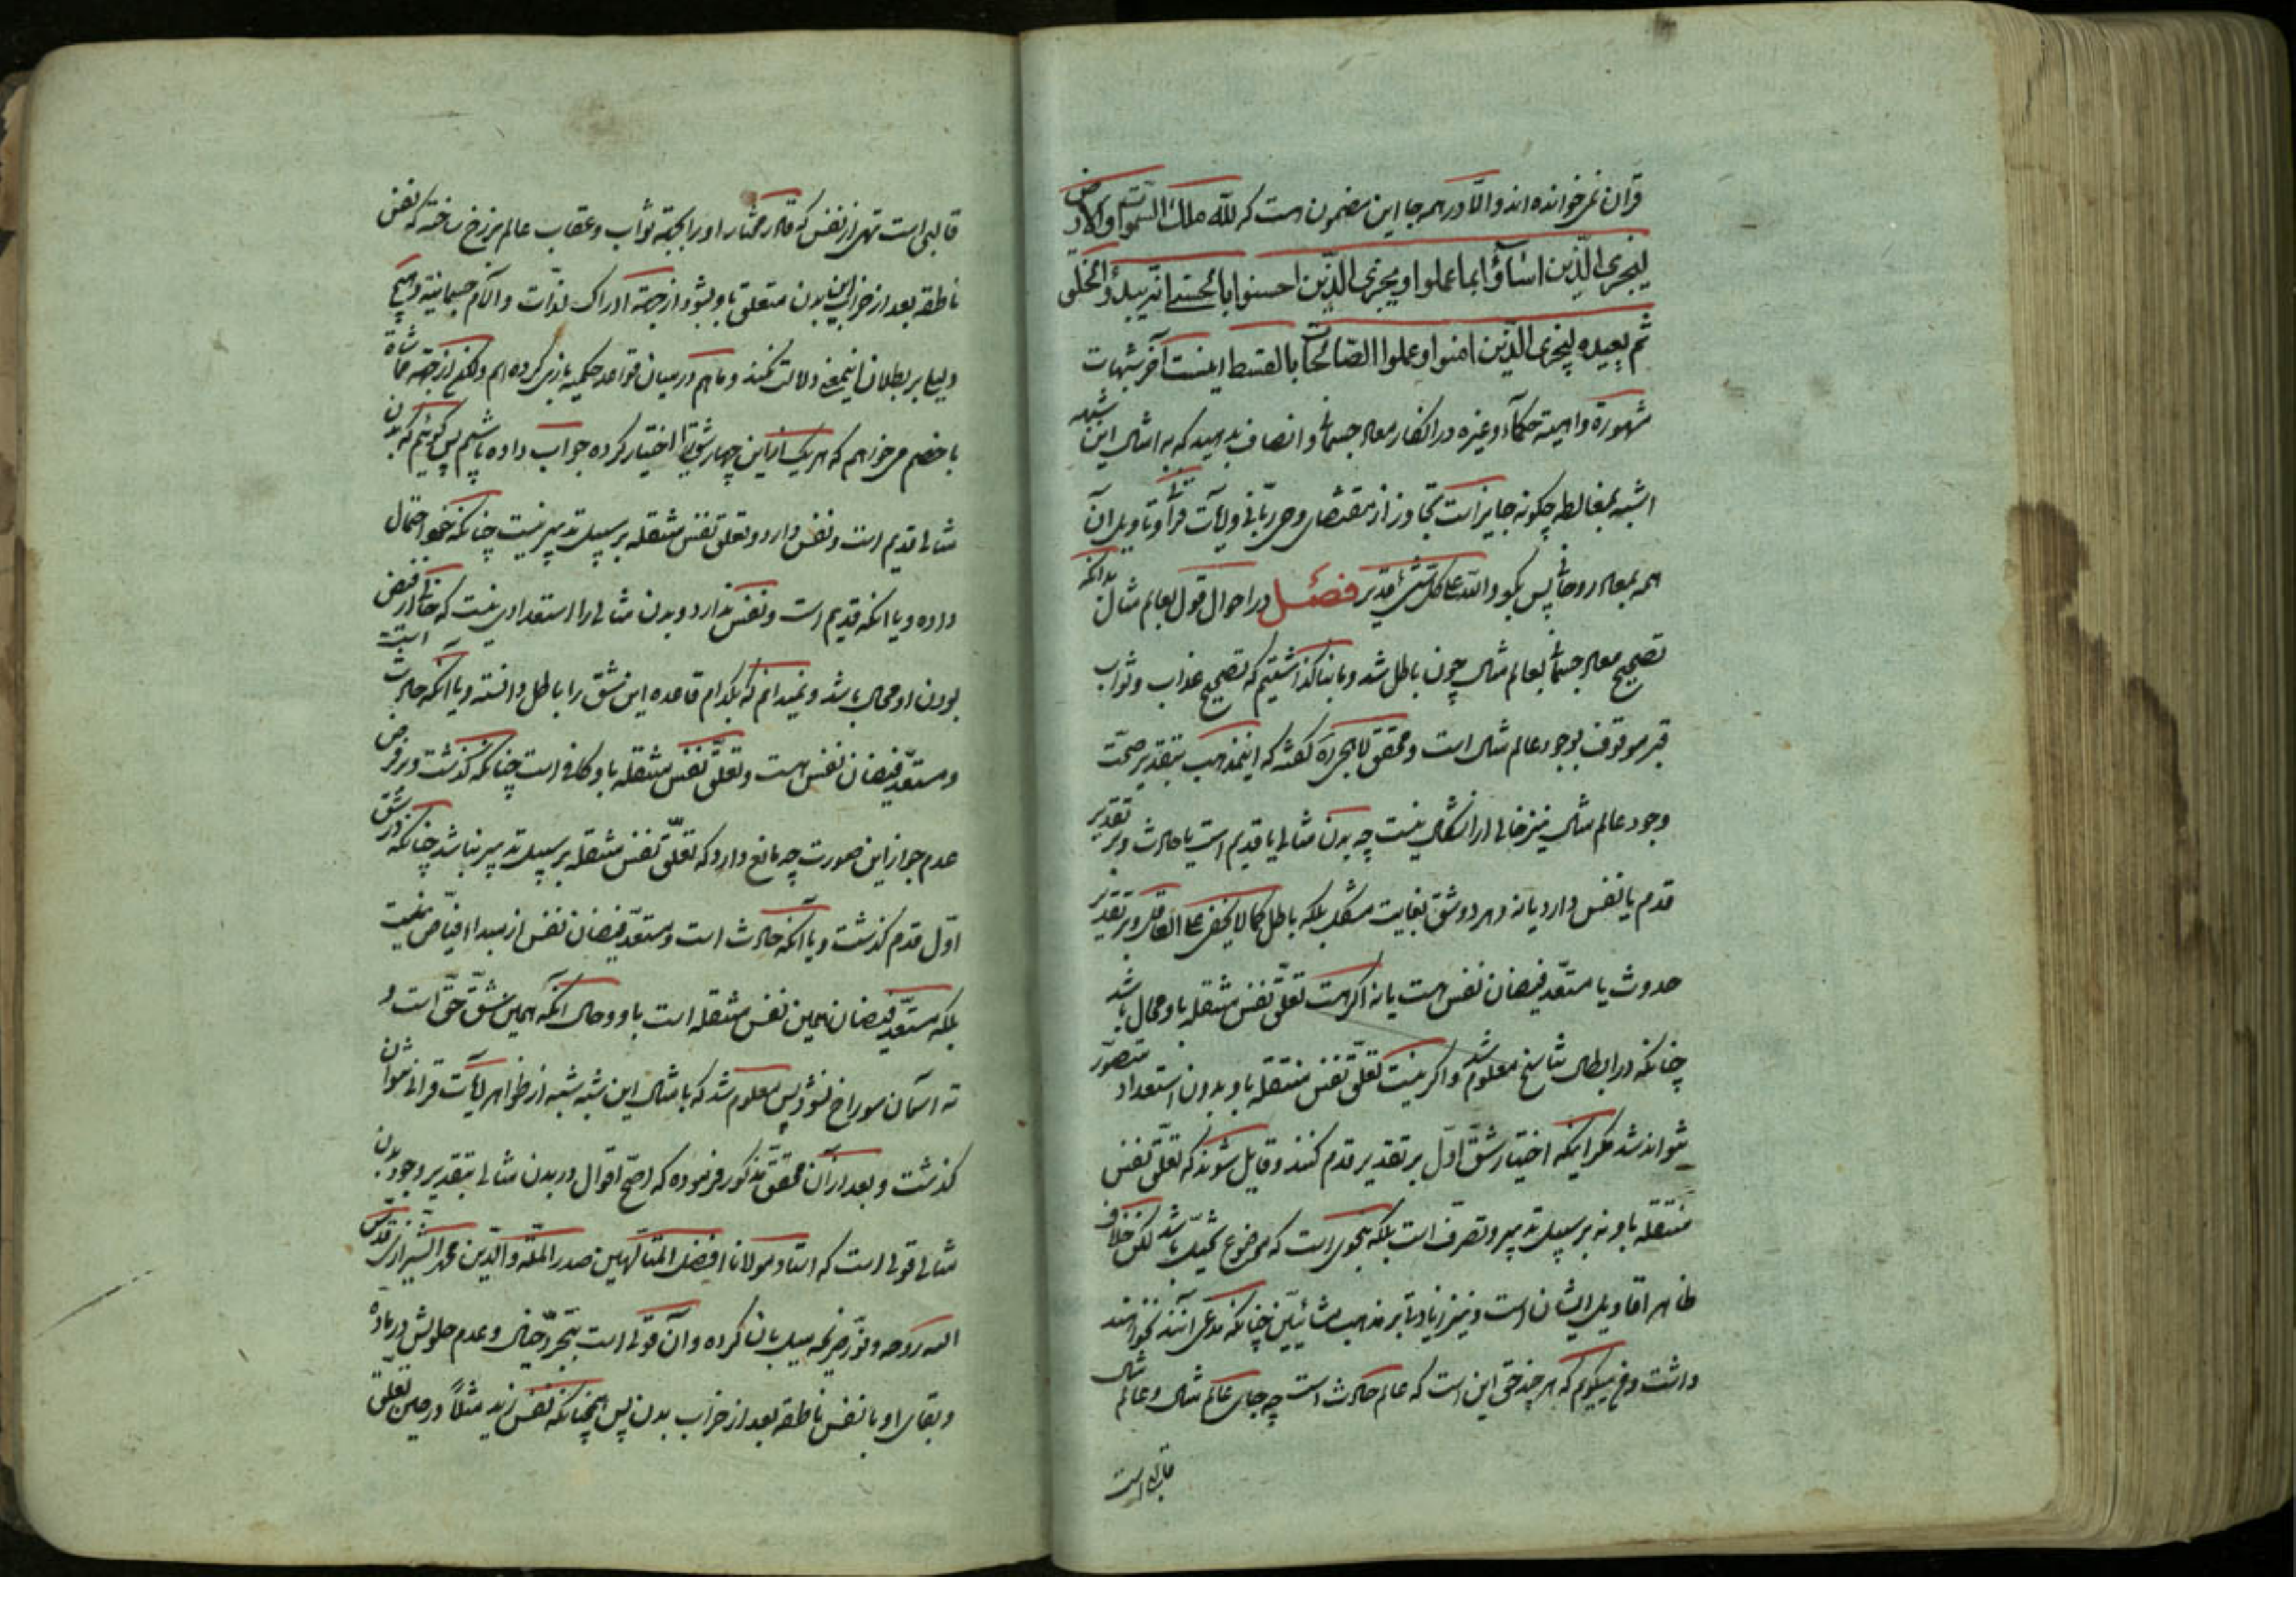 قرآن نمیخوانده اند والّا در همه جا این مضمون هست که لله ملک السموات والارض
لیجزی الّذین اساؤا بما عملوا ویجزی الّذین احسنوا بالحسنی انّه یبدؤ الخلق
ثم یعیده لیجزی الّذین امنوا وعملوا الصّالحات بالقسط اینست آخر شبهات
مشهورة واهیته حکماء وغیره در انکار معاد جسمانی و انصاف بدهید که به امثال این شبه
اشبه بمغالطه چگونه جایز است تجاوز از مقتضای وحی ربّانی و آیات قرآنی و تاویل آن
همه بمعاد روحانی پس بگو والله علی کل شیء قدیر فصل در احوال قول بعالم مثال بدانکه
تصحیح معاد جسمانی بعالم مثال چون باطل شد و ما بنا گذاشتیم که تصحیح عذاب و ثواب
قبر موقوف بوجود عالم مثال است و محقق لاهیجی ره گفته که اینمذهب بتقدیر صحّت
وجود عالم مثال نیز خالی از اشکال نیست چه بدن مثالی یا قدیم است یا حادث و بر تقدیر
قدم یا نفس دارد یا نه و هر دو شق بغایت مشکل بلکه باطل کما لا یخفی علی العاقل و بر تقدیر
حدوث یا مستعدّ فیضان نفس هست یا نه اگر هست تعلّق نفس منتقله باو محال باشد
چنانکه در ابطال تناسخ معلوم شد و اگر نیست تعلّق نفس منتقله باو بدون استعداد متصوّر
نتواند شد مگر اینکه اختیار شقّ اوّل بر تقدیر قدم کنند و قایل شوند که تعلّق نفس
منتقله باو نه بر سبیل تدبیر و تصرف است بلکه بنحوی است که موضوع تخیّل باشد لکن خلاف
ظاهر اقاویل ایشان است و نیز زیادتی بر مذهب مشائیّین چنانکه مدعی آنند نخواهند
داشت و فقیر میگویم که هر چند حق این است که عالم حادث است چه جای عالم مثال و عالم مثال
قالبی است
قالبی است تهی از نفس که قادر مختار او را بجهة ثواب و عقاب عالم برزخ ساخته که نفس
ناطقه بعد از خرابی این بدن متعلق باو بشود از جهة ادراک لذّات و آلام جسمانیّه و هیچ
دلیلی بر بطلان اینمعنی دلالت نمیکند و ما هم در میان قواعد حکمیه بازی کرده ایم ولکن از جهة مماشاة
با خصم میخواهم که هر یک از این چهار شق را اختیار کرده جواب داده باشیم پس گوئیم که بدن
مثالی قدیم است و نفس دارد و تعلق نفس منتقله بر سبیل تدبیر نیست چنانکه خود احتمال
داده و یا انکه قدیم است و نفس ندارد و بدن مثالی را استعدادی نیست که خالی از فیض
بودن او محال باشد و نمیدانم که بکدام قاعده این شق را باطل دانسته و یا انکه حادث است
و مستعدّ فیضان نفس هست و تعلّق نفس منتقله باو کافی است چنانکه گذشت و بر فرض
عدم جواز این صورت چه مانع دارد که تعلّق نفس منتقله بر سبیل تدبیر نباشد چنانکه در شق
اوّل قدم گذشت و یا آنکه حادث است و مستعدّ فیضان نفس از مبداء فیّاض نیست
بلکه مستعدّ فیضان همین نفس منتقله است باو و حال آنکه همین شقّ حقّ است و
نه آسمان سوراخ نشود پس معلوم شد که با مثال این شبه شبه از ظواهر آیات قرانی نتوان
گذشت و بعد از آن محقق مذکور فرموده که اصحّ اقوال در بدن مثالی بتقدیر وجود بدن
مثالی قولی است که استاد مولانا افضل المتألهین صدر الملّة والدّین محمد الشیرازی قدّس
الله روحه و نوّر ضریحه بیان کرده و آن قولی است بتجرّد خیال و عدم حلولش در مادّه
و بقای او با نفس ناطقه بعد از خراب بدن پس همچنانکه نفس زید مثلاً در حین تعلق